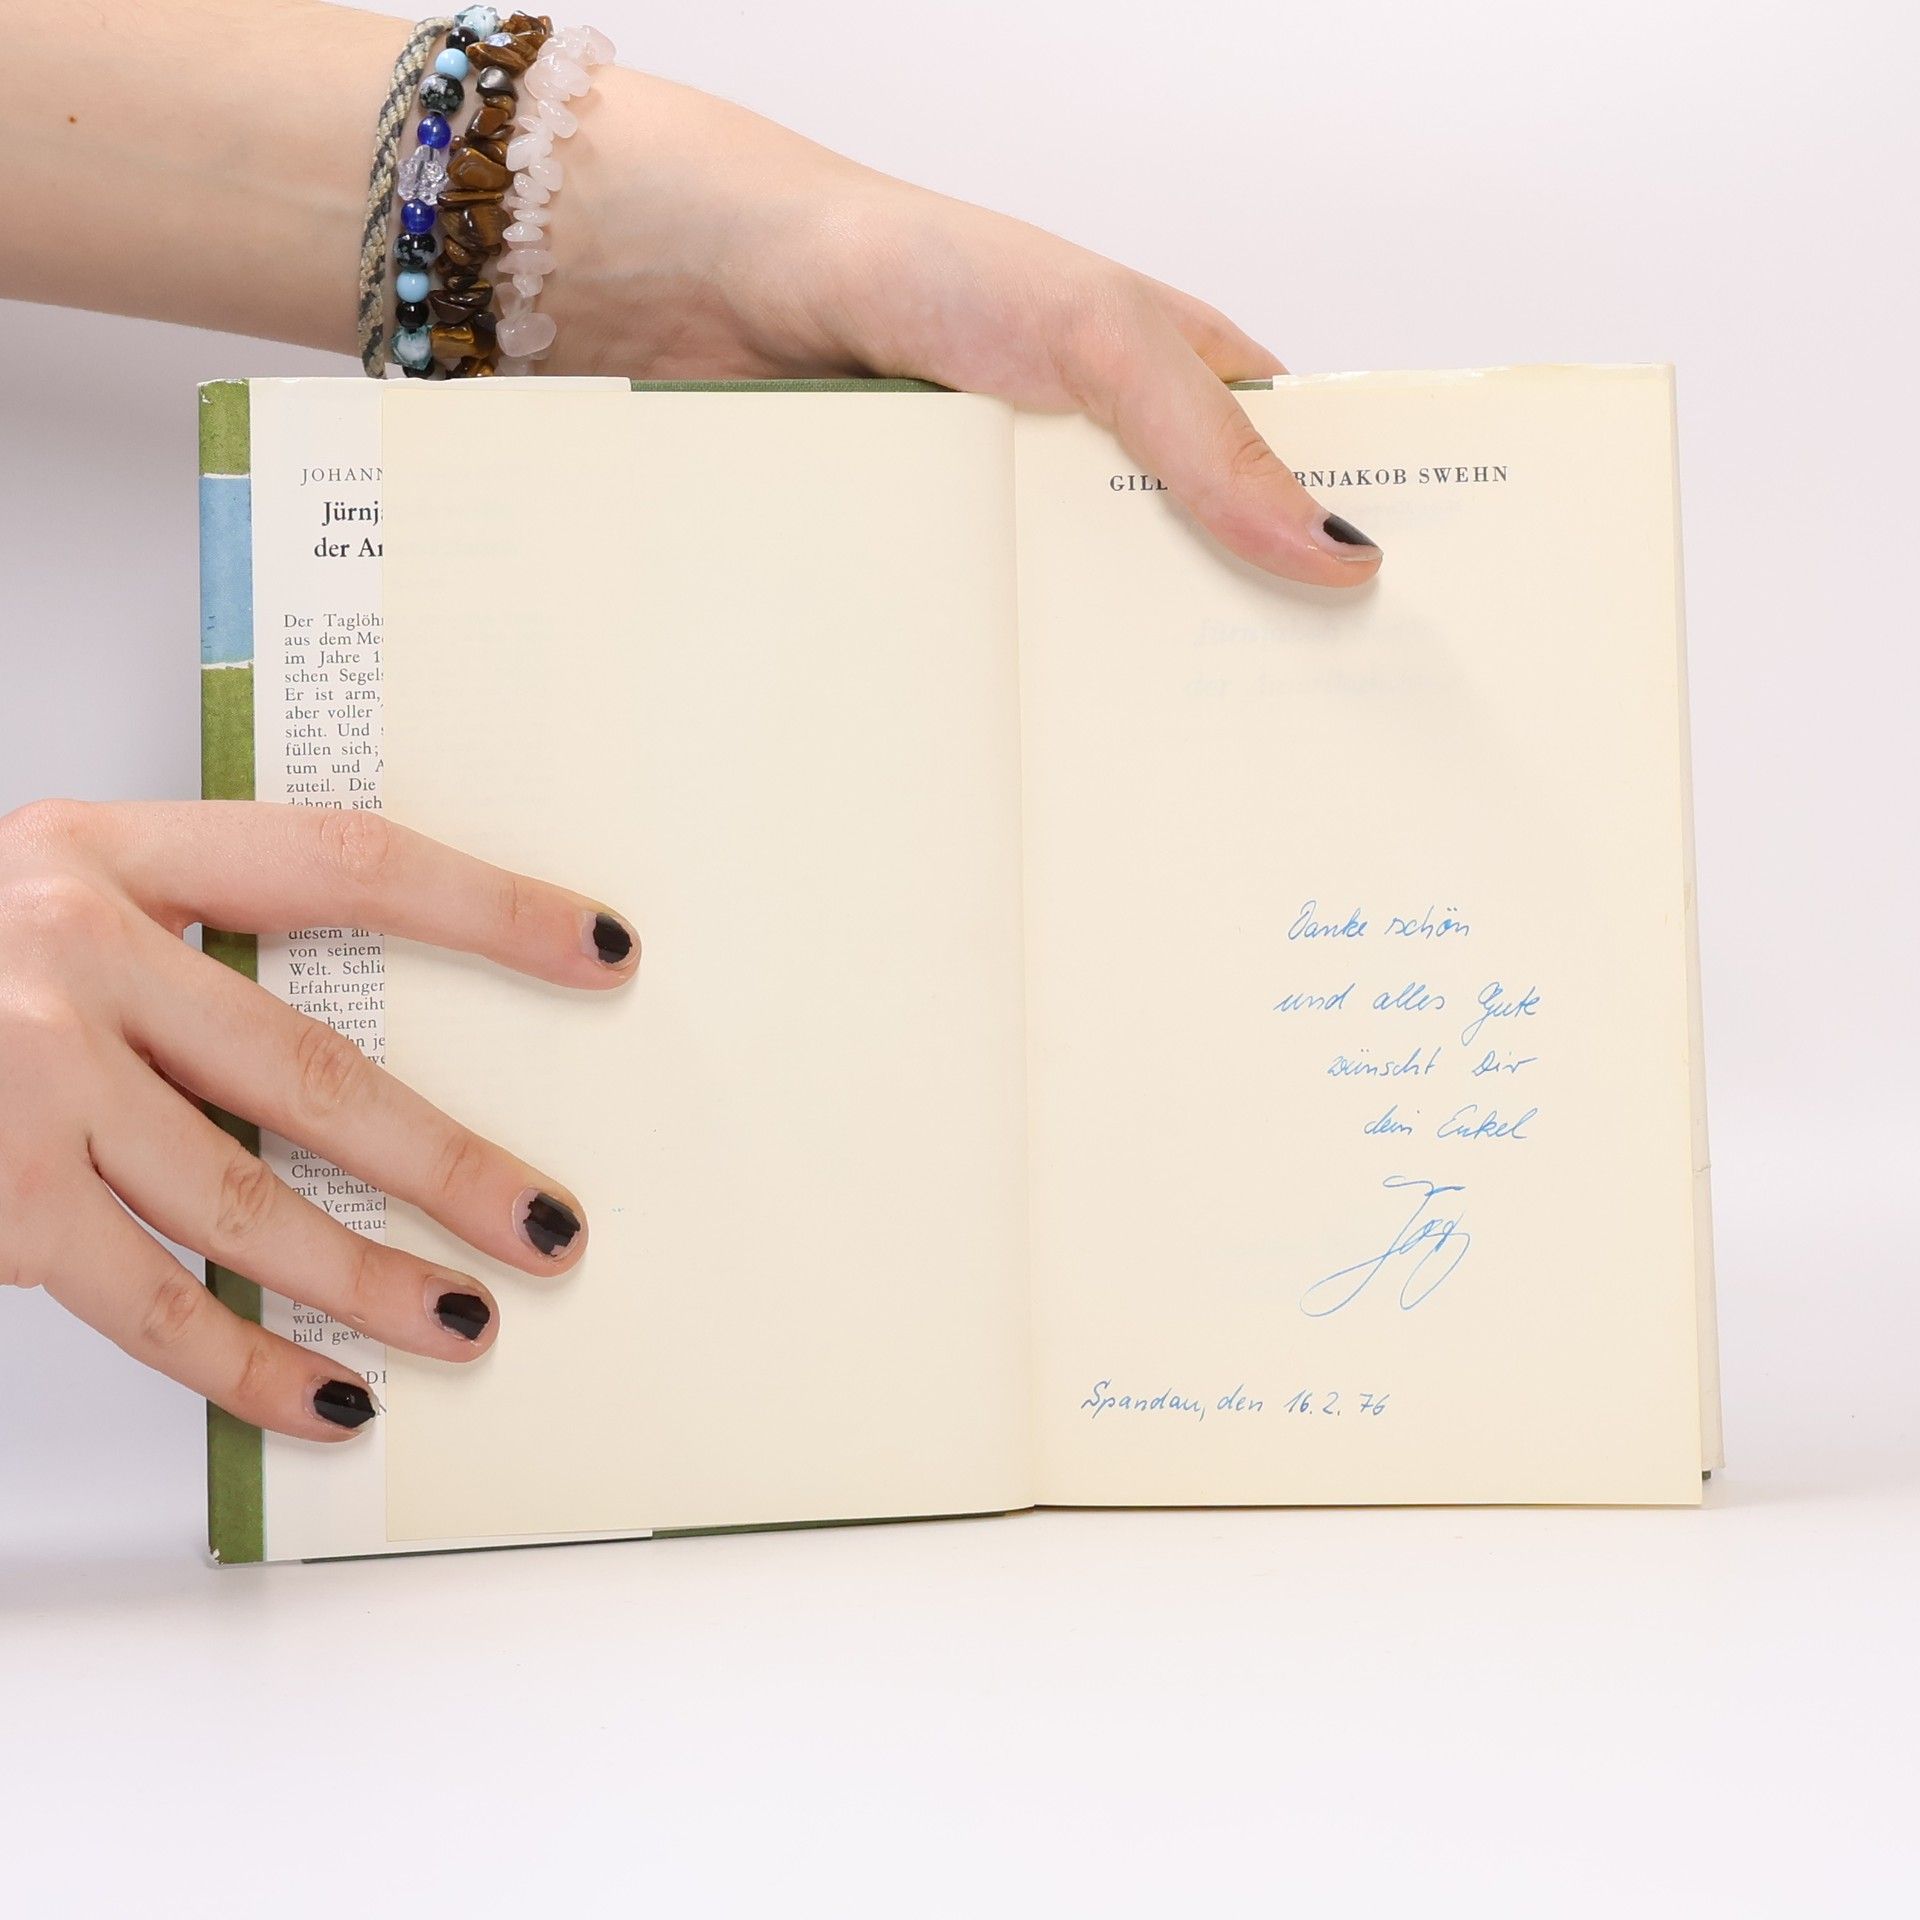 JOHANN
Jürnj
der A
Der Taglöh
aus dem Me
im Jahre
schen Segels
Er ist arm,
aber voller
sicht. Und
füllen sich;
tum und A
zuteil. Die
dehnen sich
diesem an
von seinem
Welt. Schli
Erfahrunge
tränkt, reiht
harten
hn je
we
auc
Chron
mit behuts
Vermäc
rttaus
wüch
bild gew
GILL RNJAKOB SWEHN
Danke schön
und alles Gute
wünscht Dir
dein Enkel
Spandau, den 16.2.76